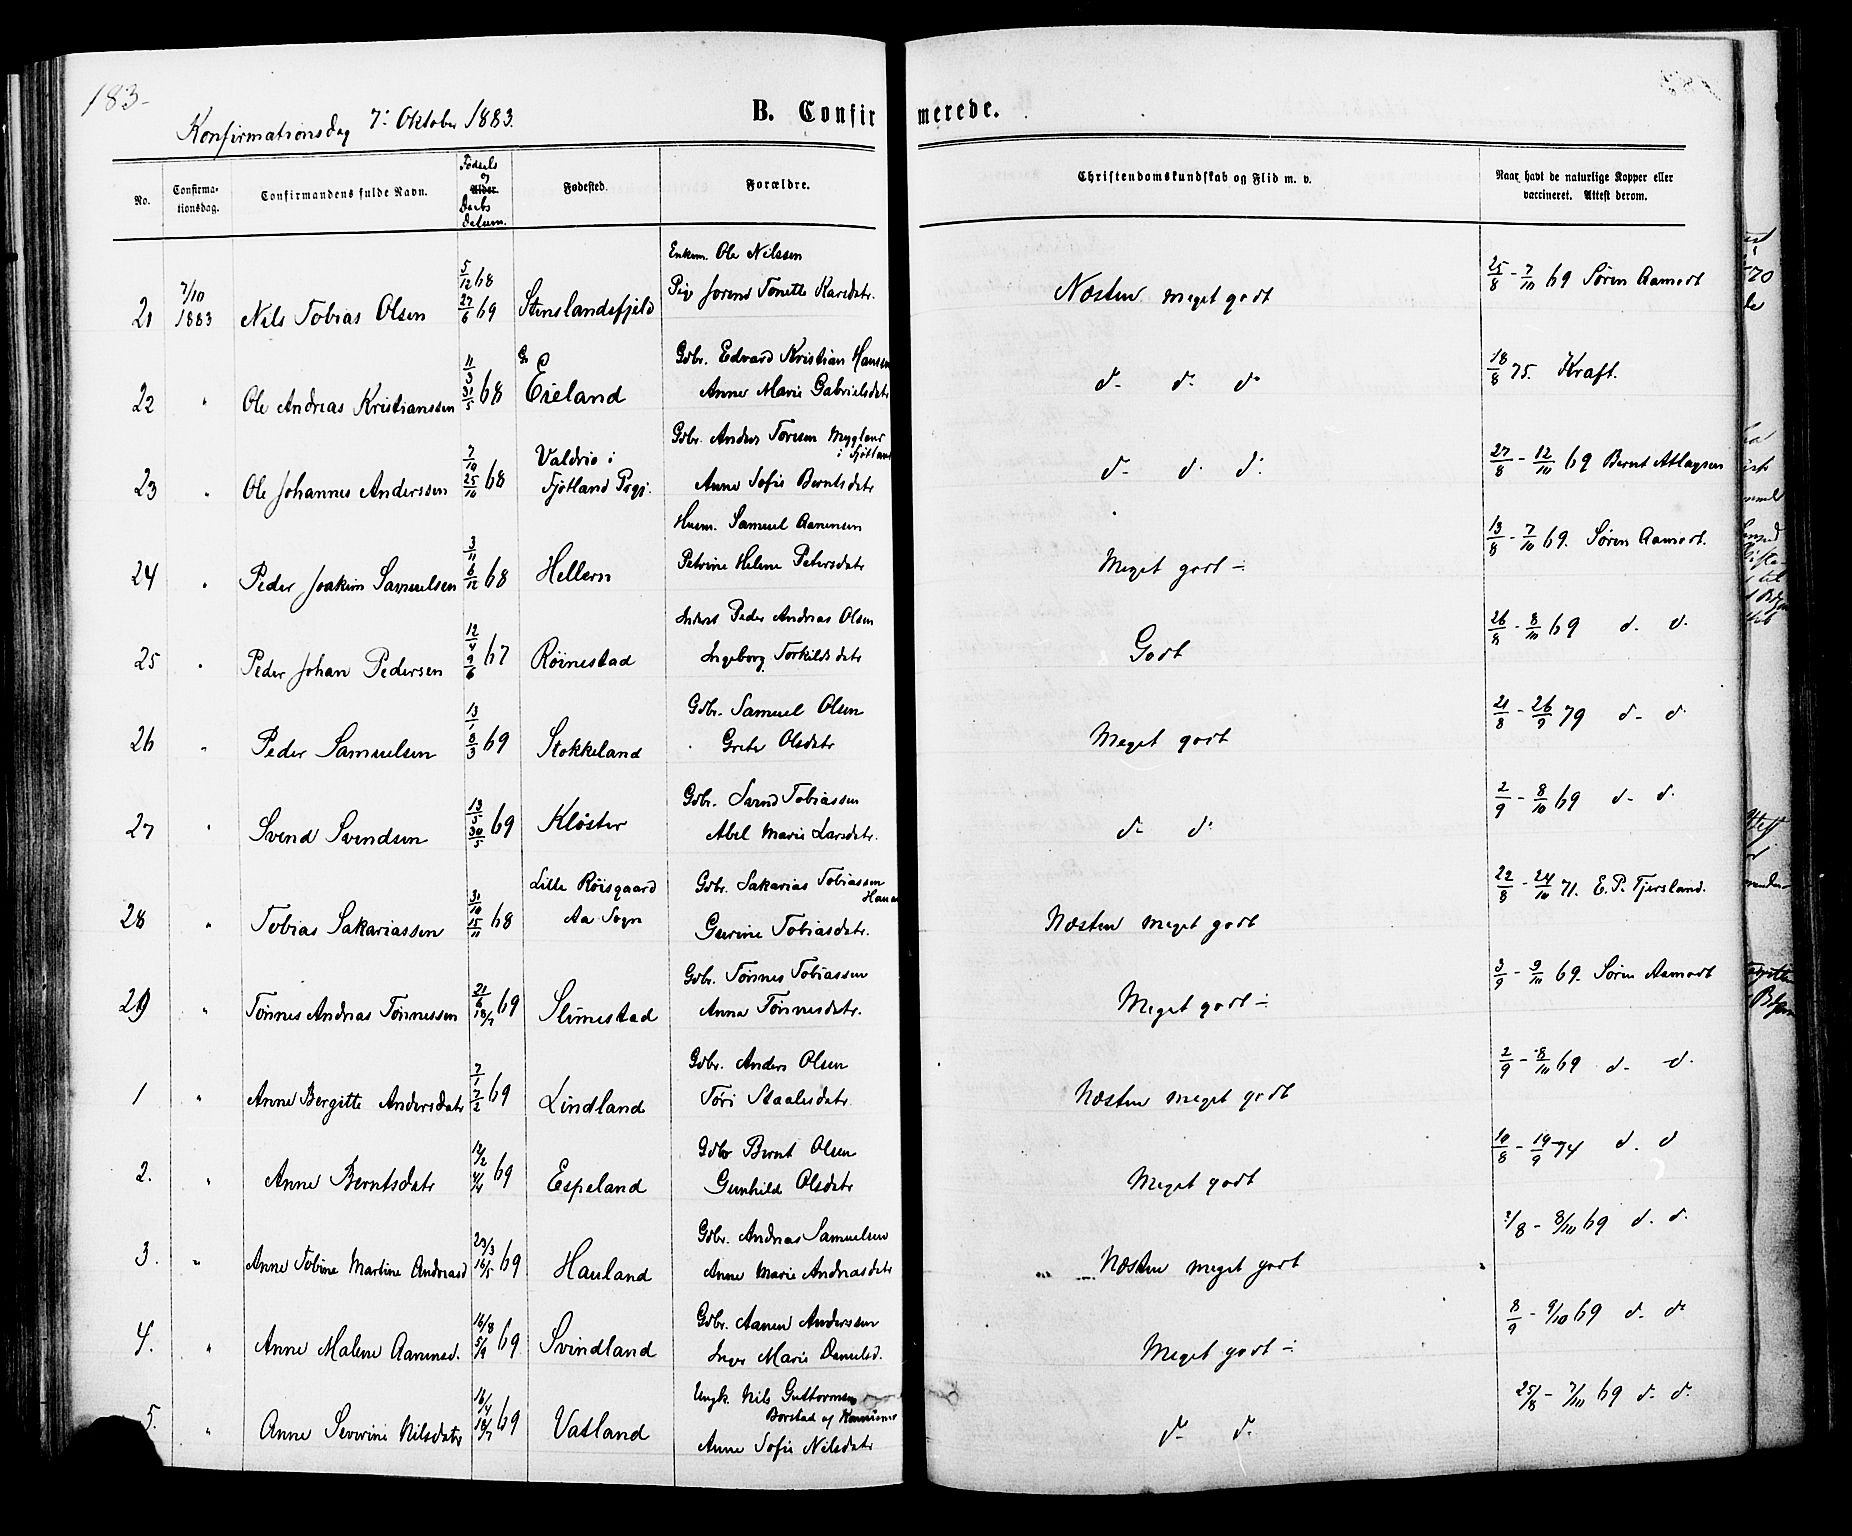 183
Konfirmationsdag 7: Oktober 1883.
B. Confirmerede.
No.
Confirmationsdag.
Confirmandens fulde Navn.
Fødsels og Alder Daabs Datum.
Fødested.
Forældre.
Christendomskundskab og Flid m. v.
Naar havt de naturlige Kopper eller vaccineret. Attest derom.
21 7/10 1883 Nils Tobias Olsen 5/12 68 27/6 69 Stenslandsfjeld Enkem. Ole Nilssen
Pig Jorend Tonette Karsdatr. Næsten meget godt 25/8 - 7/10 69 Søren Aamodt
22 " Ole Andreas Kristianssen 11/3 31/5 68 Eieland Gdbr. Edvard Kristian Hanssen
Anne Marie Gabrielsdatr d- d- d- 18/8 75. Kraft.
23 " Ole Johannes Anderssen 7/10 25/10 68 Valdrio i Fjotland Prgj. Gdbr. Anders Toresen Mygland i Fjotland
Anne Sofie Berntsdatr d- d- d- 27/8 - 12/10 69 Bernt Atlagsen
24 " Peder Joakim Samuelsen 3/11 6/12 68 Hellern Husm. Samuel Aanensen
Petrine Helene Petersdatr Meget godt - 13/8 - 7/10 69. Søren Aamodt.
25 " Peder Johan Pedersen 12/4 9/6 67 Röinestad Inderst Peder Andreas Olsen
Ingeborg Torkildsdatr Godt 26/8 - 8/10 69 d. d.
26 " Peder Samuelsen 13/1 8/3 69 Stokkeland Gdbr. Samuel Olsen
Grete Olsdatr Meget godt 21/8 - 26/9 79 d- d-
27 " Svend Svendsen 13/5 30/5 69 Kloster Gdbr. Svend Tobiassen
Abel Marie Larsdatr. d- d- 2/9 - 8/10 69 d- d.
28 " Tobias Sakariassen 31/10 15/11 68 Lille Röisgaard Aa Sogn Gdbr. Sakarias Tobiassen
Gurine Tobiasdatr. Næsten meget godt 22/8 - 24/10 71. E. P. Tjersland.
29 " Tönnes Andreas Tönnessen 21/6 18/7 69 Slimestad Gdbr. Tönnes Tobiassen
Anna Tönnesdatr. Meget godt - 3/9 - 9/10 69. Søren Aamodt
1 " Anne Bergitte Andersdatr 7/1 7/2 69 Lindland Gdbr. Anders Olsen
Töri Staalesdatr. Næsten meget godt 2/9 - 8/10 69 d- d.
2. " Anne Berntsdatr 12/2 4/4 69 Espeland Gdbr Bernt Olsen
Gunhild Olsdatr Meget godt 10/8 - 19/9 74 d. d
3. " Anne Tobine Martine Andreasd 23/3 16/5 69 Hauland Gdbr. Andreas Samuelsen
Anne Marie Andreasdatr Næsten meget godt 2/8 - 8/10 69 d. d.
4. " Anne Malene Aanensd. 16/8 5/9 69 Svindland Gdbr. Aanen Anderssen
Inger Marie Danielsd. Meget godt - 8/9 - 9/10 69 d. d-
5. " Anne Severine Nilsdatr 16/4 18/7 69 Vatland Ungk. Nils Guttormsen
Borstad af
Anne Sofie Nilsdatr d- d- 25/8 - 7/10 69 d- d.